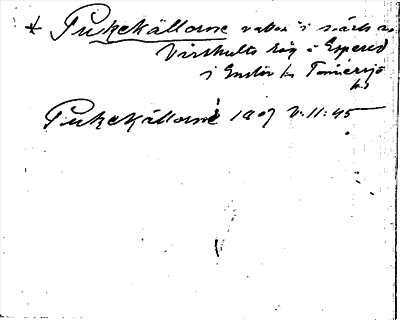 * Pukekällorne vatten i
Virshults säg i Espered
i Enslöv ks Tönnersjö
hd
Pukekällorne 1907 V:11:45